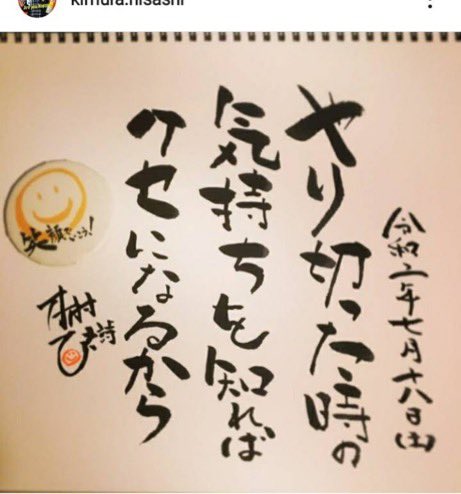 kimura.hisashi
令和二年七月十八日(土)
やり切った時の
気持ちを知れば
クセになるから
笑顔でいこう!
木村